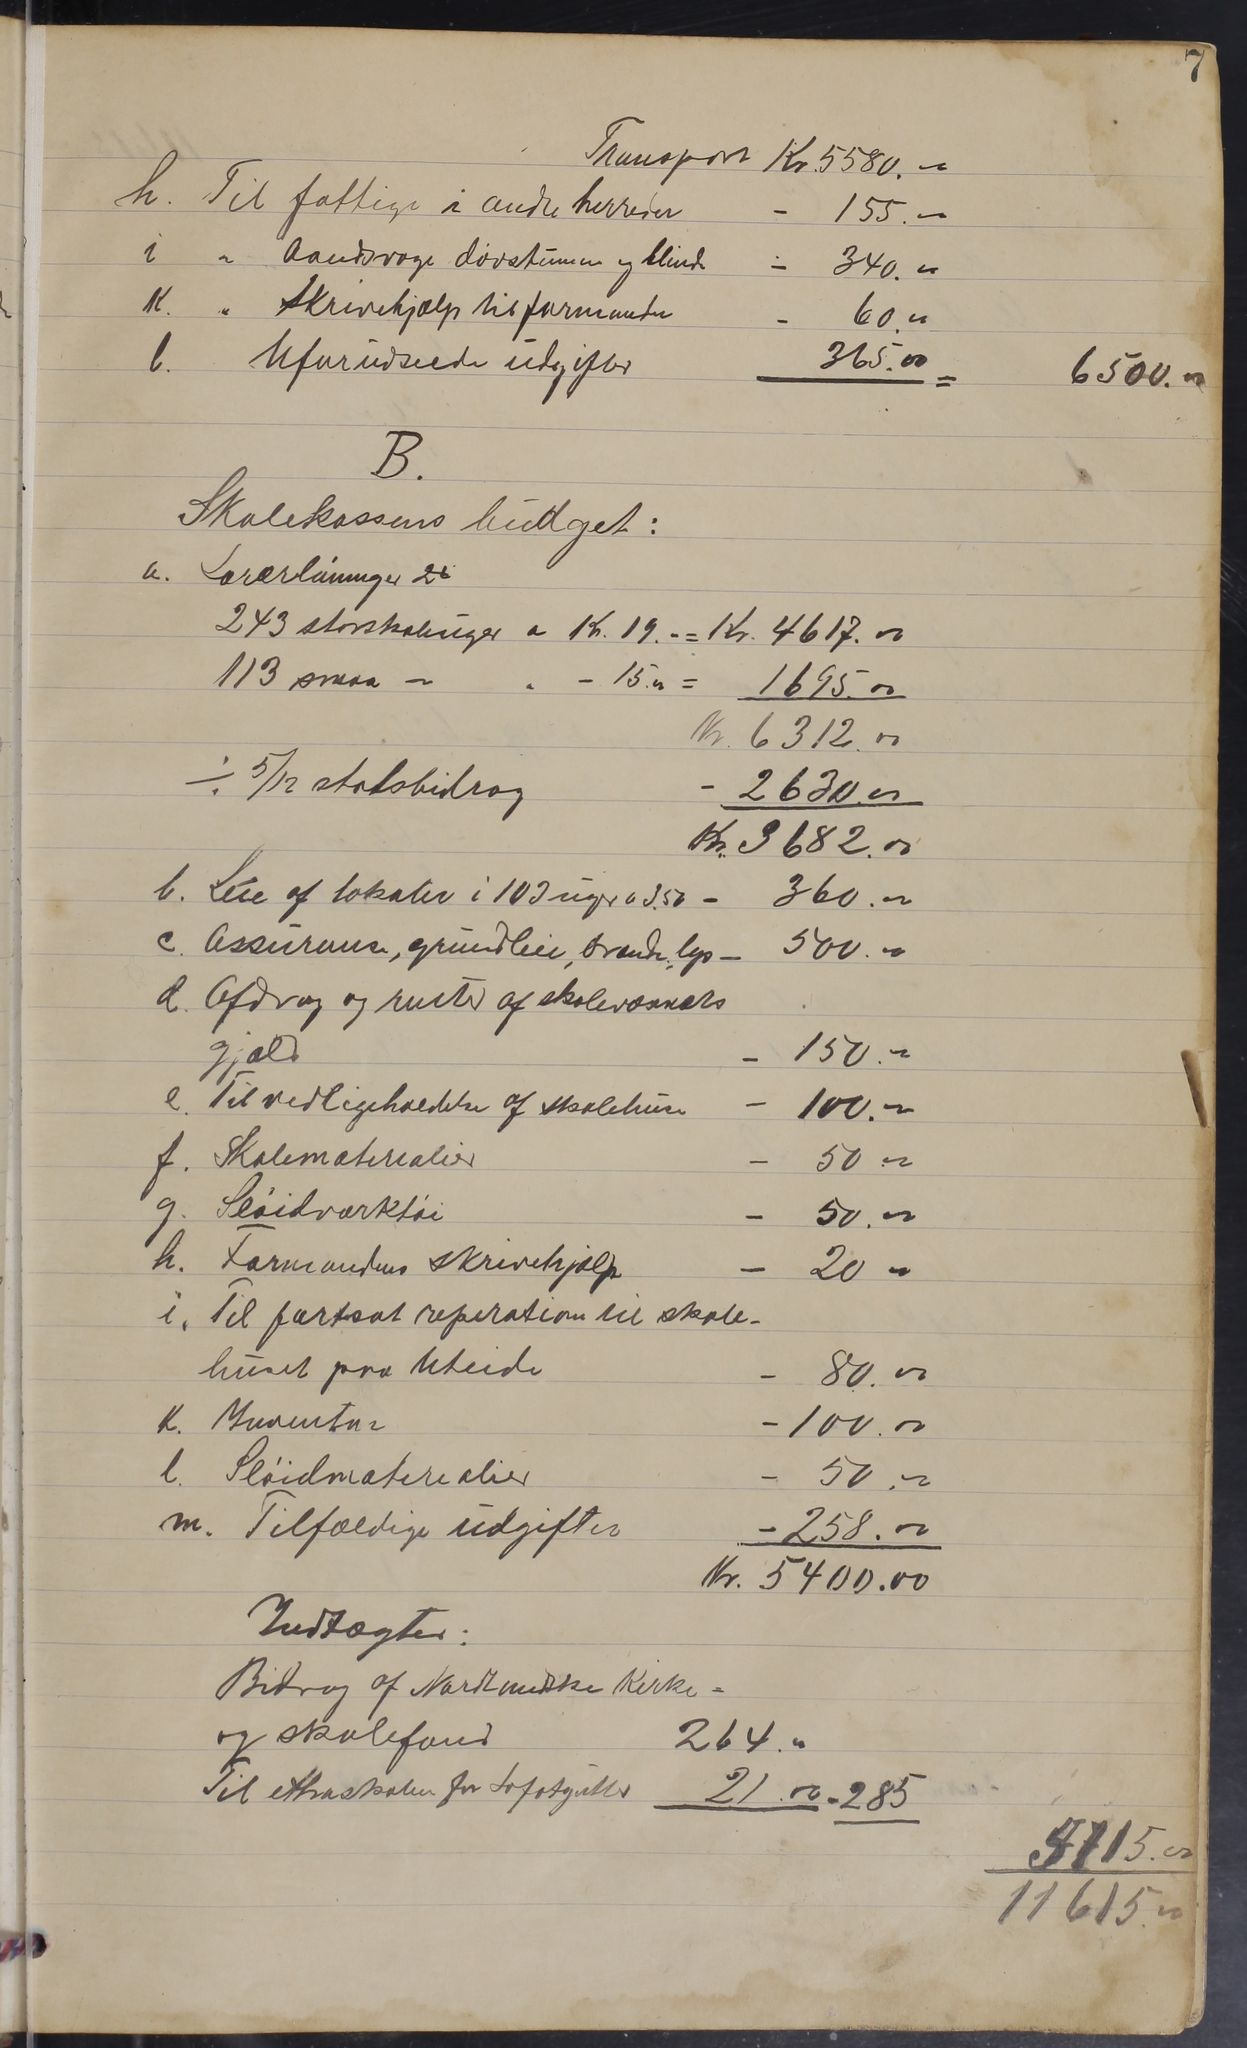 7
Transport Kr. 5580. "
h. Til fattige i andre herreder - 155. "
i " Aandsvage døvstumme og blinde - 340. "
k. " Skrivehjælp til formanden - 60. "
l. Uforudseede udgifter 365.00 = 6500. "
B.
Skolekassens budget:
a. Lærerlønninger
243 storskoleuger a Kr. 19. " = Kr. 4617.00
113 smaa - " - 15. " = 1695.00
Kr. 6312.00
÷ 5/12 statsbidrag - 2630.00
Kr. 3682.00
b. Leie af lokaler i 103 uger a 3.50 - 360. "
c. Assurance, grundleie, brænde, lys - 500. "
d. Afdrag og renter af skolevæsenets
gjæld - 150. "
e. Til vedligeholdelse af skolehuse - 100. "
f. Skolematerialier - 50 "
g. Sløidværktøi - 50. "
h. Formandens skrivehjælp - 20 "
i. Til fortsat reperation til skole-
huset paa Uteide - 80.00
k. Inventar - 100.00
l. Sløidmaterialier - 50. "
m. Tilfældige udgifter - 258.00
Kr. 5400.00
Indtægter:
Bidrag af Nordlandske Kirke-
og skolefond 264. "
Til ekstraskolen for Lofotgutter 21.00 - 285
5115.00
11615. "